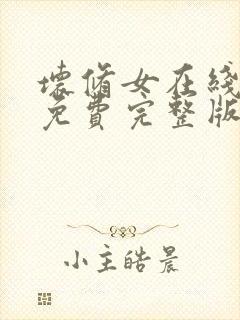 壞脩女在綫
免費完整版
小主皓晨